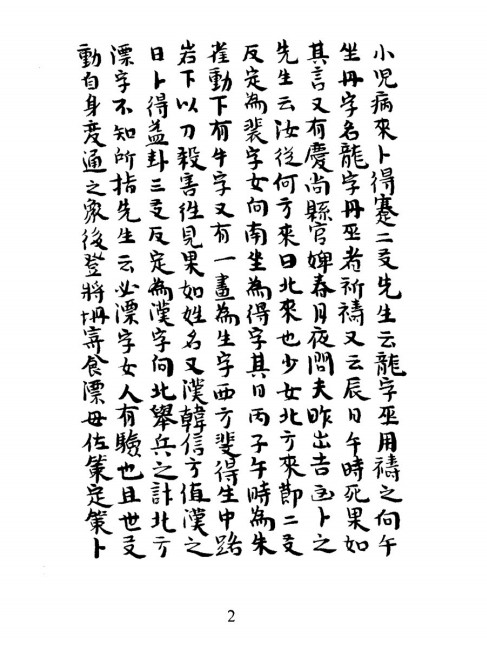 小児病來卜得蹇二爻先生云龍字巫用禱之向午
坐丹字名龍字丹巫者祈禱又云辰日午時死果如
其言又有慶尚縣官婢春月夜間夫昨出吉凶卜之
先生云汝從何方來曰北來也少女北方來節二爻
反定為裴字女向南坐為得字其日丙子午時為朱
雀動下有牛字又有一畫為生字西方斐得生中路
岩下以刀殺害徃見果如姓名又漢韓信方值漢之
日卜得益卦三爻反定為漢字向北舉兵之計北方
漂字不知所指先生云必漂字女人有驗也且世爻
動自身变通之象後登將坍寄食漂母佐策定策卜
2